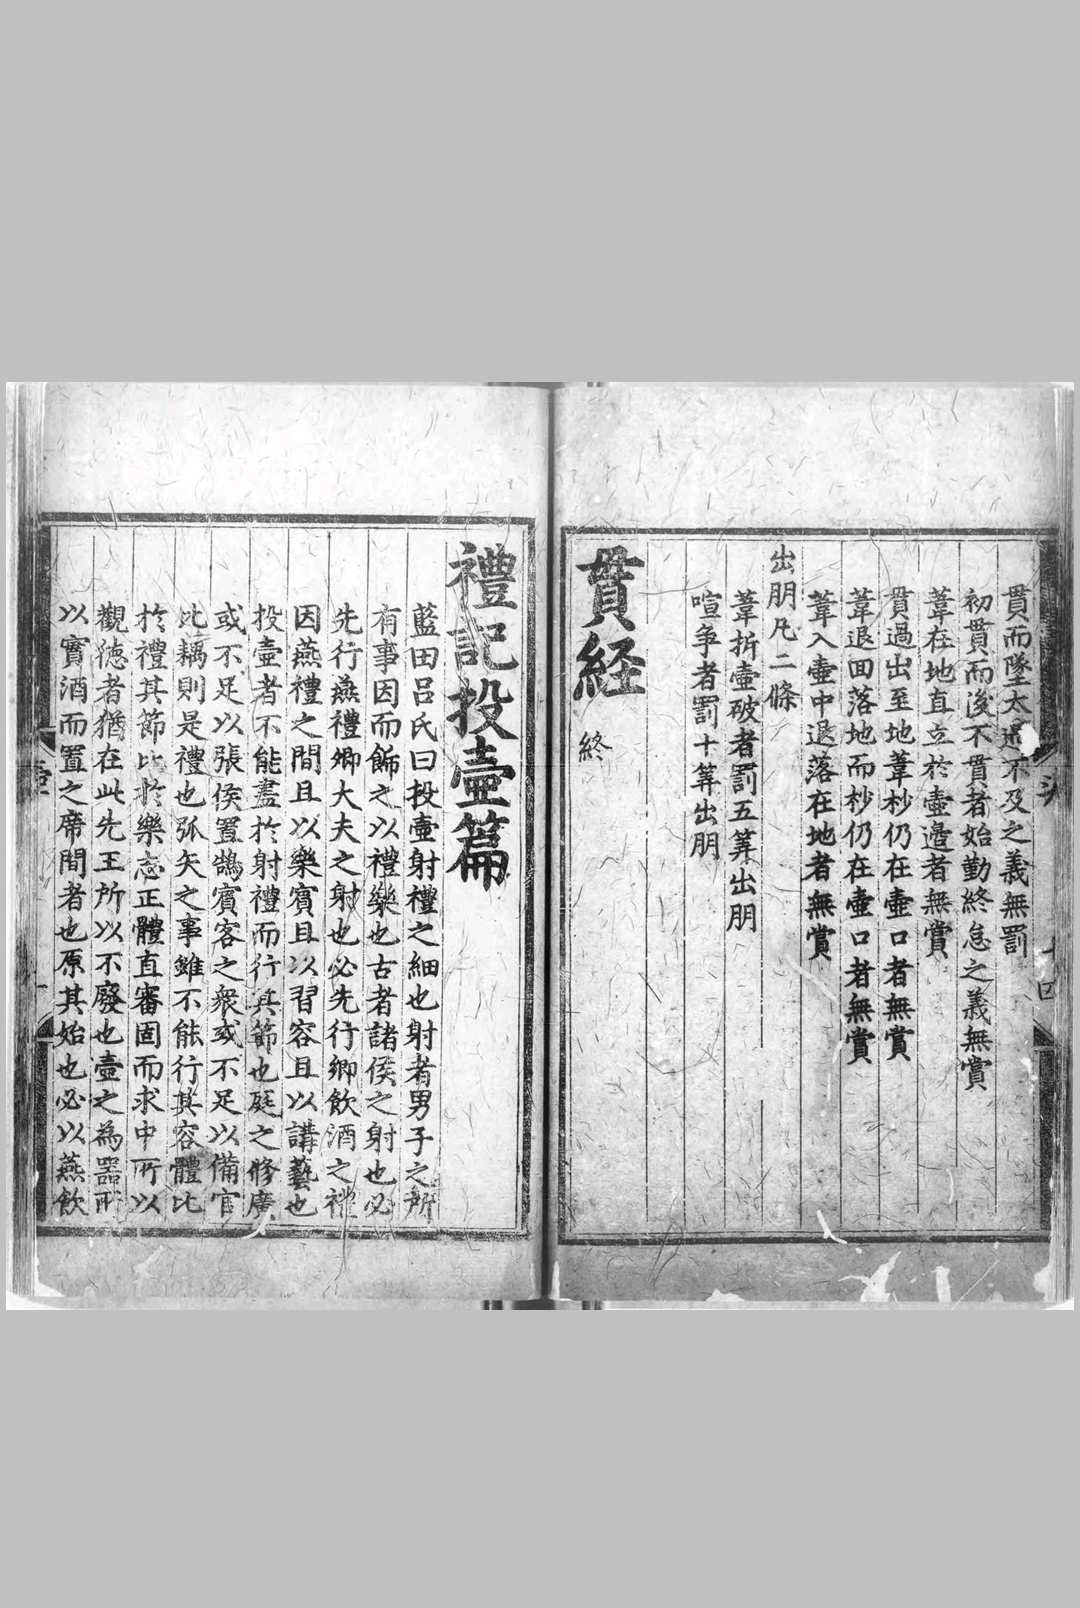 貫而墜太過不及之義無罰
初貫而後不貫者始勤終怠之義無賞
葦在地直立於壺邉者無賞
貫過出至地葦杪仍在壺口者無賞
葦退回落地而杪仍在壺口者無賞
葦入壺中退落在地者無賞
出朋凡二條
葦折壺破者罰五筭出朋
喧爭者罰十筭出朋
貫経終
禮記投壺篇
藍田吕氏曰投壺射禮之細也射者男子之所
有事因而飾之以禮樂也古者諸侯之射也必
先行燕禮卿大夫之射也必先行鄉飲酒之禮
因燕禮之間且以樂賓且以習容且以講藝也
投壺者不能盡於射禮而行其節也庭之修廣
或不足以張侯置鵠賓客之衆或不足以備官
比耦則是禮也弧矢之事雖不能行其容體比
於禮其節比於樂志正體直審固而求中所以
觀徳者猶在此先王所以不廢也壺之為器所
以實酒而置之席間者也原其始也必以燕飲